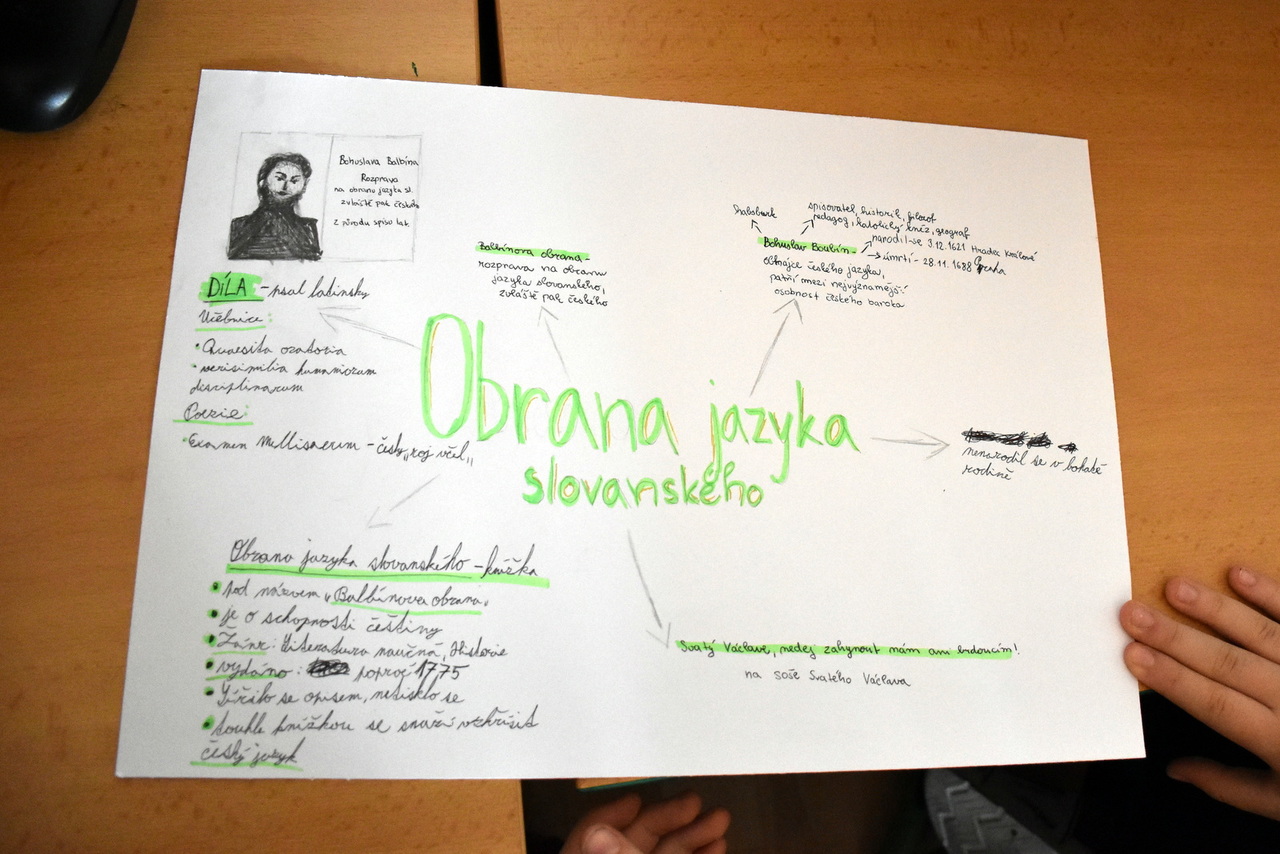 Bohuslava Balbína
Rozprava
na obranu jazyka sl.
zvláště pak českého
z původu spisu lat.
DÍLA - psal latinsky
Učebnice:
• Quaesita oratoria
• verisimilia humaniorum
desciplinarum
Poezie:
• Examen Mellisaerum - česky „roj včel„
Balbínova obrana -
rozprava na obranu
jazyka slovanského,
zvláště pak českého
Habsburk
spisovatel, historik, filozof
pedagog, katolický kněz, geograf
Bohuslav Boulbín -
narodil-se 3.12.1621 Hradec Králové
úmrtí - 28.11.1688 Praha
obhájce českého jazyka,
patří mezi nejvýznamější
osobnost českého baroka
Obrana jazyka
slovanského
nenarodil se v bohaté
rodině
Obrana jazyka slovanského - knížka
• Pod názvem „Balbínova obrana„
• je o schopnosti češtiny
• Žánr: literatura naučná, Historie
• vydáno: poproč 1775
• Šířilo se opisem, netisklo se
• touhle knížkou se snaží vzkřísit
český jazyk
Svatý Václave, nedej zahynout nám ani budoucím!
na soše Svatého Václava